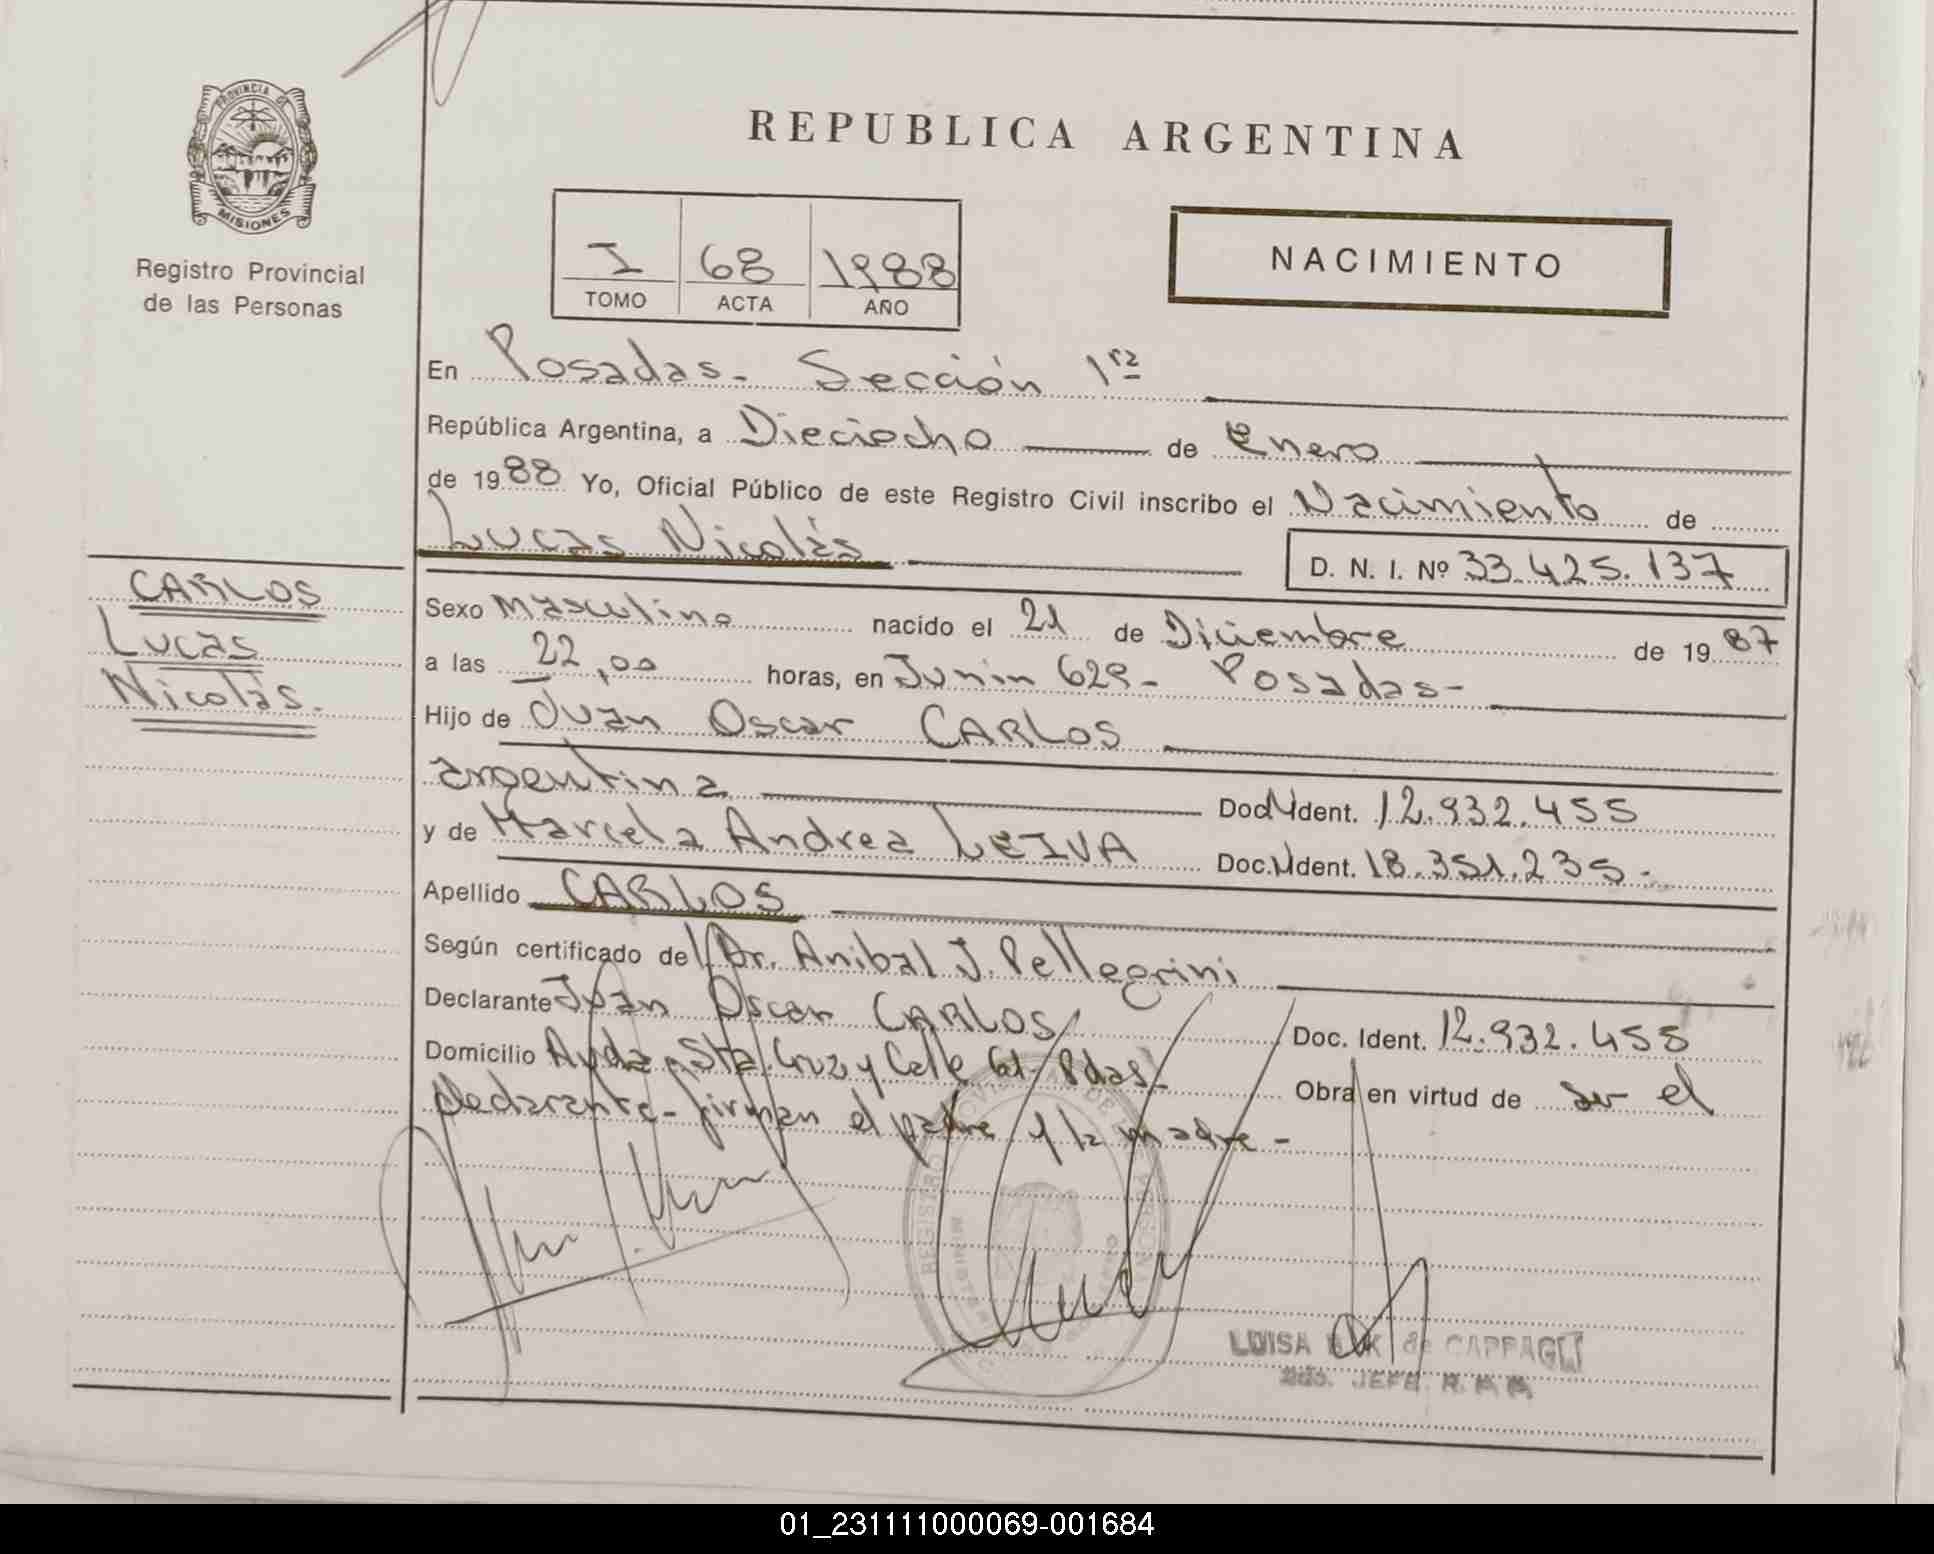 PROVINCIA DE
MISIONES
Registro Provincial
de las Personas
REPUBLICA ARGENTINA
I 68 1988
TOMO ACTA AÑO
NACIMIENTO
En Posadas - Sección 1ra
República Argentina, a Dieciocho de Enero
de 1988 Yo, Oficial Público de este Registro Civil inscribo el Nacimiento de
Lucas Nicolás D. N. I. Nº 33.425.137
CARLOS
Lucas
Nicolás.
Sexo Masculino nacido el 21 de Diciembre de 1987
a las 22,00 horas, en Junin 629 - Posadas -
Hijo de Juan Oscar CARLOS
argentina Doc. Ident. 12.932.455
y de Marcela Andrea LEIVA Doc. Ident. 18.351.235.-
Apellido CARLOS
Según certificado del Dr. Anibal J. Pellegrini
Declarante Juan Oscar CARLOS Doc. Ident. 12.932.455
Domicilio Avda. Sta. Cruz y Calle 61 - Pdas - Obra en virtud de ser el
declarante - firman el padre y la madre -
REGISTRO PROVINCIAL DE PERSONAS
LUISA de
JEFE
01_231111000069-001684